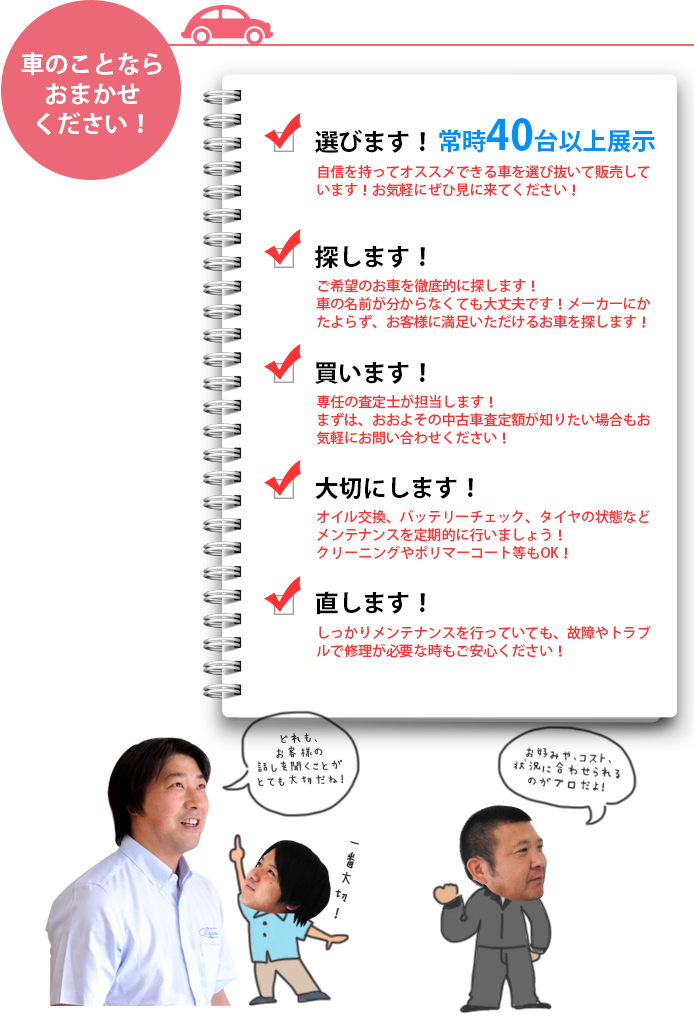 車のことなら
おまかせ
ください！
選びます！ 常時40台以上展示
自信を持ってオススメできる車を選び抜いて販売して
います！お気軽にぜひ見に来てください！
探します！
ご希望のお車を徹底的に探します！
車の名前が分からなくても大丈夫です！メーカーにか
たよらず、お客様に満足いただけるお車を探します！
買います！
専任の査定士が担当します！
まずは、おおよその中古車査定額が知りたい場合もお
気軽にお問い合わせください！
大切にします！
オイル交換、バッテリーチェック、タイヤの状態など
メンテナンスを定期的に行いましょう！
クリーニングやポリマーコート等もOK！
直します！
しっかりメンテナンスを行っていても、故障やトラブ
ルで修理が必要な時もご安心ください！
どれも、
お客様の
話しを聞くことが
とても大切だね！
一番大切！
お好みや、コスト、
状況に合わせられる
のがプロだよ！